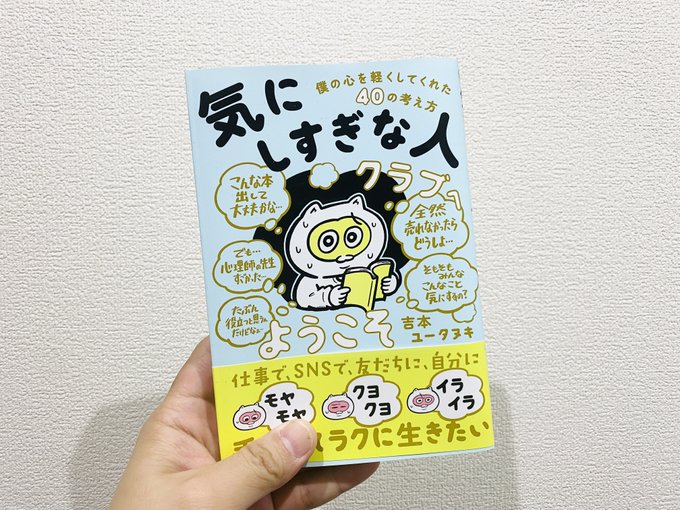 僕の心を軽くしてくれた
40の考え方
気に
しすぎな人
クラブへ
ようこそ
こんな本
出して
大丈夫かな…
でも…
心理師の先生
すごかった…
たぶん
役立つと思うん
だけどなぁ…
全然
売れなかったら
どうしよ…
そもそもみんな
こんなこと
気にするの?
吉本
ユータヌキ
仕事で、SNSで、友だちに、自分に
モヤ
モヤ
クヨ
クヨ
イラ
イラ
ラクに生きたい